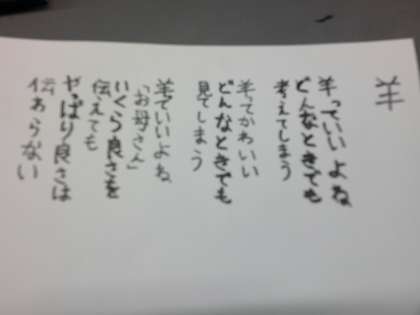 羊
羊っていいよね
どんなときでも
考えてしまう
羊ってかわいい
どんなときでも
見てしまう
羊でいいよね
「お母さん」
いくら良さを
伝えても
やっぱり良さは
伝わらない